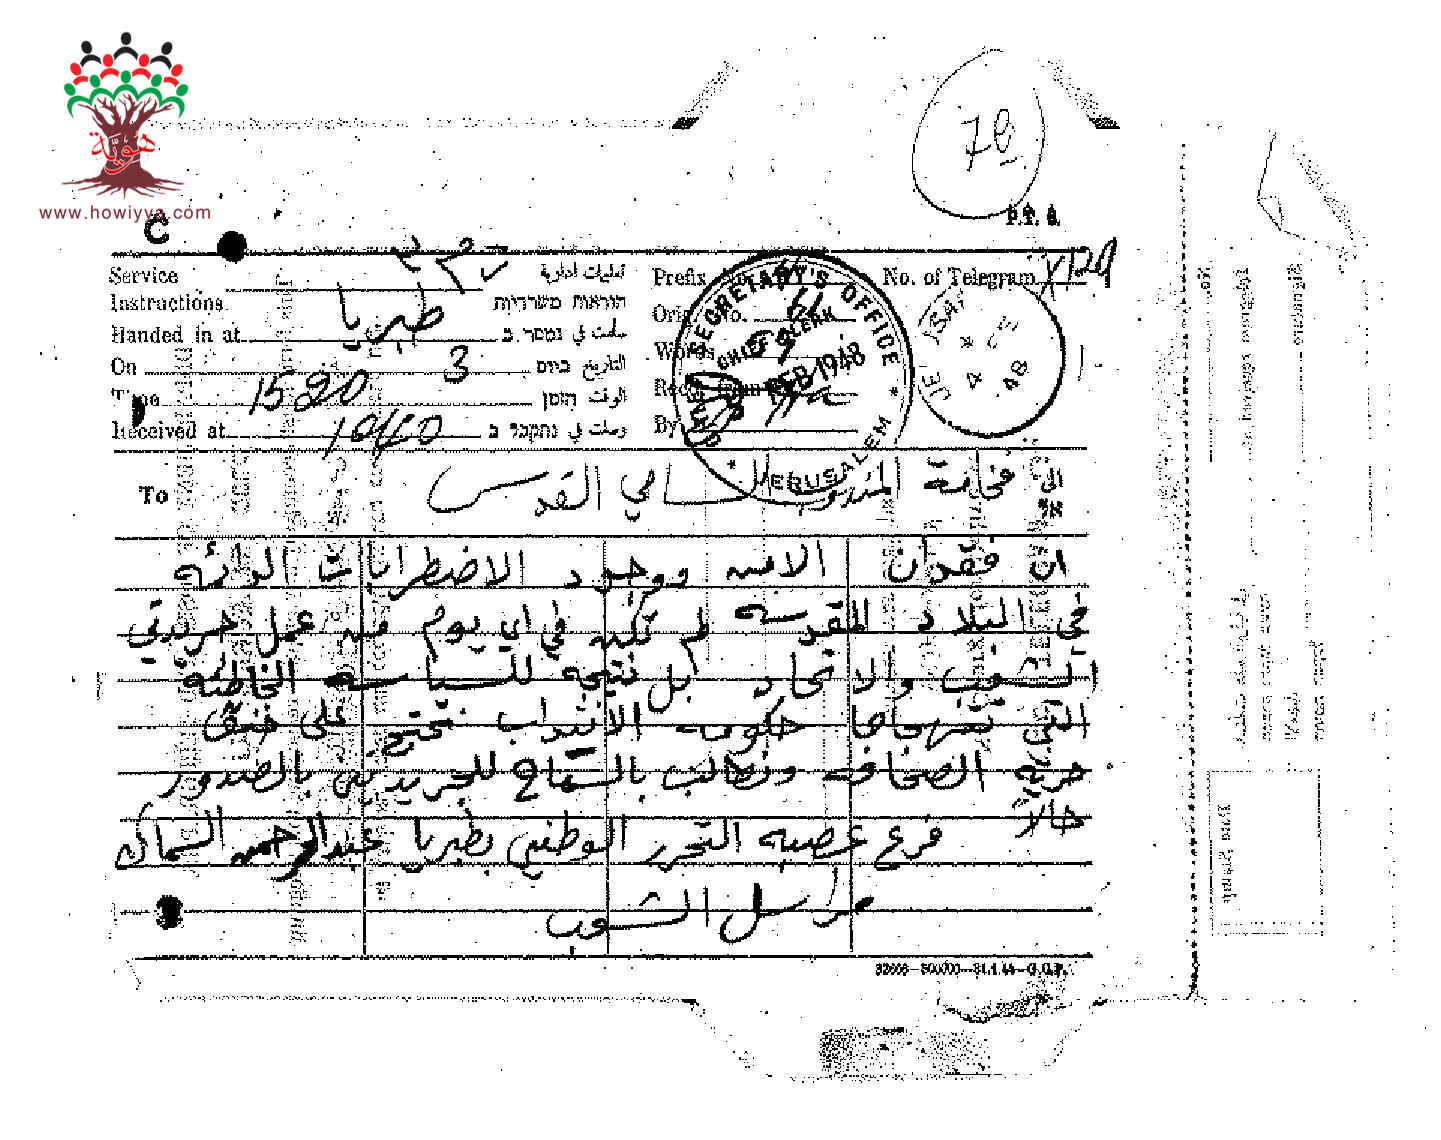 هويّة
www.howiyya.com
70
P.T. 6.
C
Service تعليمات ادارية
Instructions הוראות משרדיות
Prefix
No. of Telegram X129
Handed in at طبريا سلمت في נמסר ב
Orig. No.
On 3 التاريخ ביום
Words 59
Time 1520 الوقت הזמן
Received at 1640 وصلت في נתקבל ב
By
SECRETARY'S OFFICE
CHIEF CLERK
FEB 1948
JERUSALEM
JE ISA
4 FE
48
To الى فخامة المندوب السامي القدس
אל
ان فقدان الامن ووجود الاضطرابات الدائمة
في البلاد المقدسة لم تكن في اي يوم من عمل جريدتي
الشعب والاتحاد بل نتيجة للسياسة الخاطئة
التي تنهجها حكومة الانتداب نحتج على خنق
حرية الصحافة ونطالب بالسماح للجريدتين بالصدور
حالاً
فرع عصبة التحرر الوطني بطبريا عبدالرحمن السماك
مراسل الشعب
32608—300000—31.1.44—G.G.P.